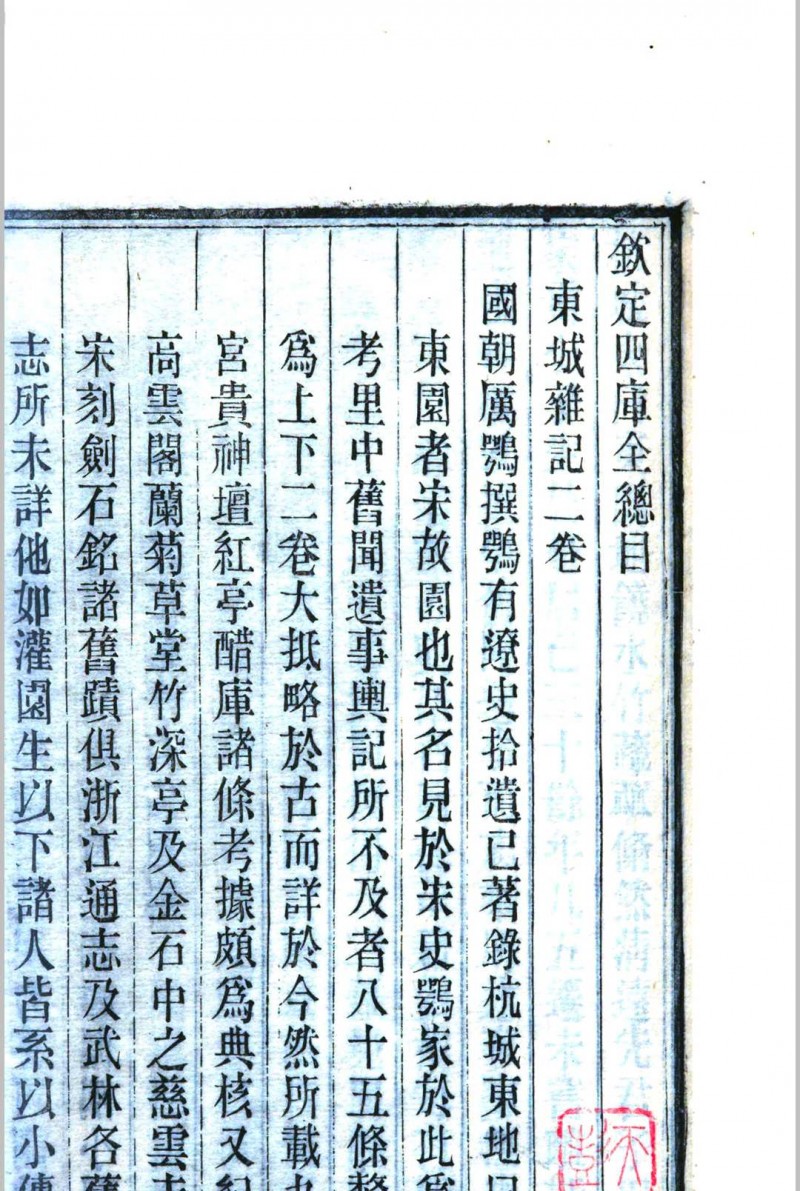 欽定四庫全總目
東城雜記二卷
國朝厲鶚撰鶚有遼史拾遺已著錄杭城東地
東園者宋故園也其名見於宋史鶚家於此爲
考里中舊聞遺事輿記所不及者八十五條
爲上下二卷大抵略於古而詳於今然所載
宮貴神壇紅亭醋庫諸條考據頗爲典核又
高雲閣蘭菊草堂竹深亭及金石中之慈雲
宋刻劍石銘諸舊蹟俱浙江通志及武林各舊
志所未詳他如灌園生以下諸人皆系以小傳